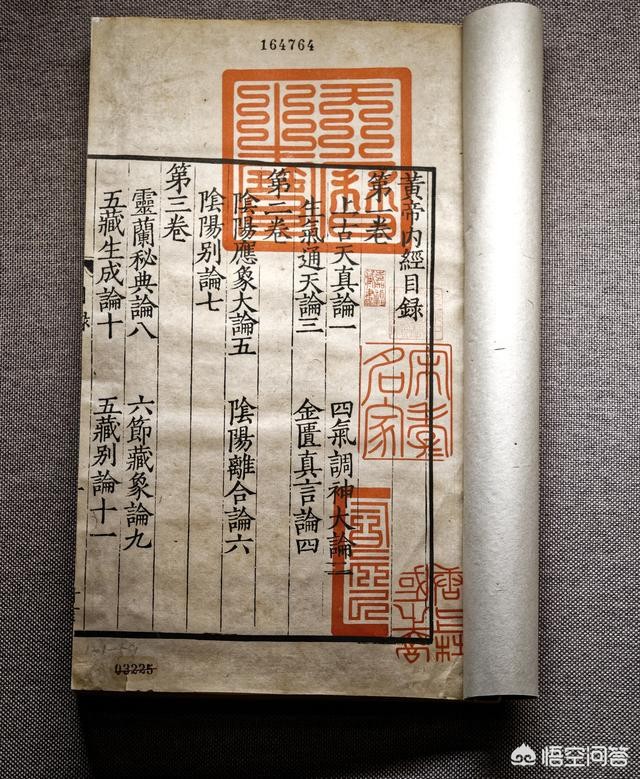 164764
黃帝內經目錄
第一卷
上古天真論一 四氣調神大論二
生氣通天論三 金匱真言論四
第二卷
陰陽應象大論五 陰陽離合論六
陰陽別論七
第三卷
靈蘭秘典論八 六節藏象論九
五藏生成論十 五藏別論十一
03225
悟空问答